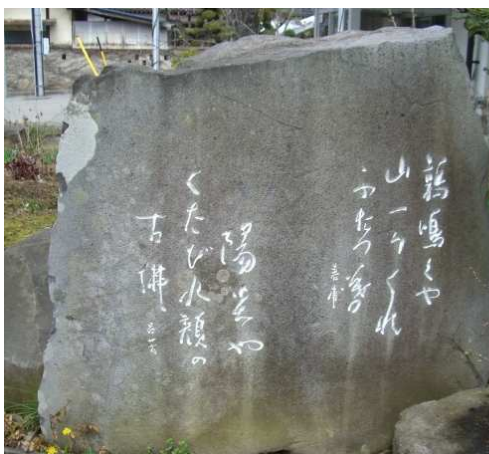 鶉鳴くや
山一つくれ
ふたつ暮
春甫
陽炎や
くたびれ顔の
古佛
呂芳